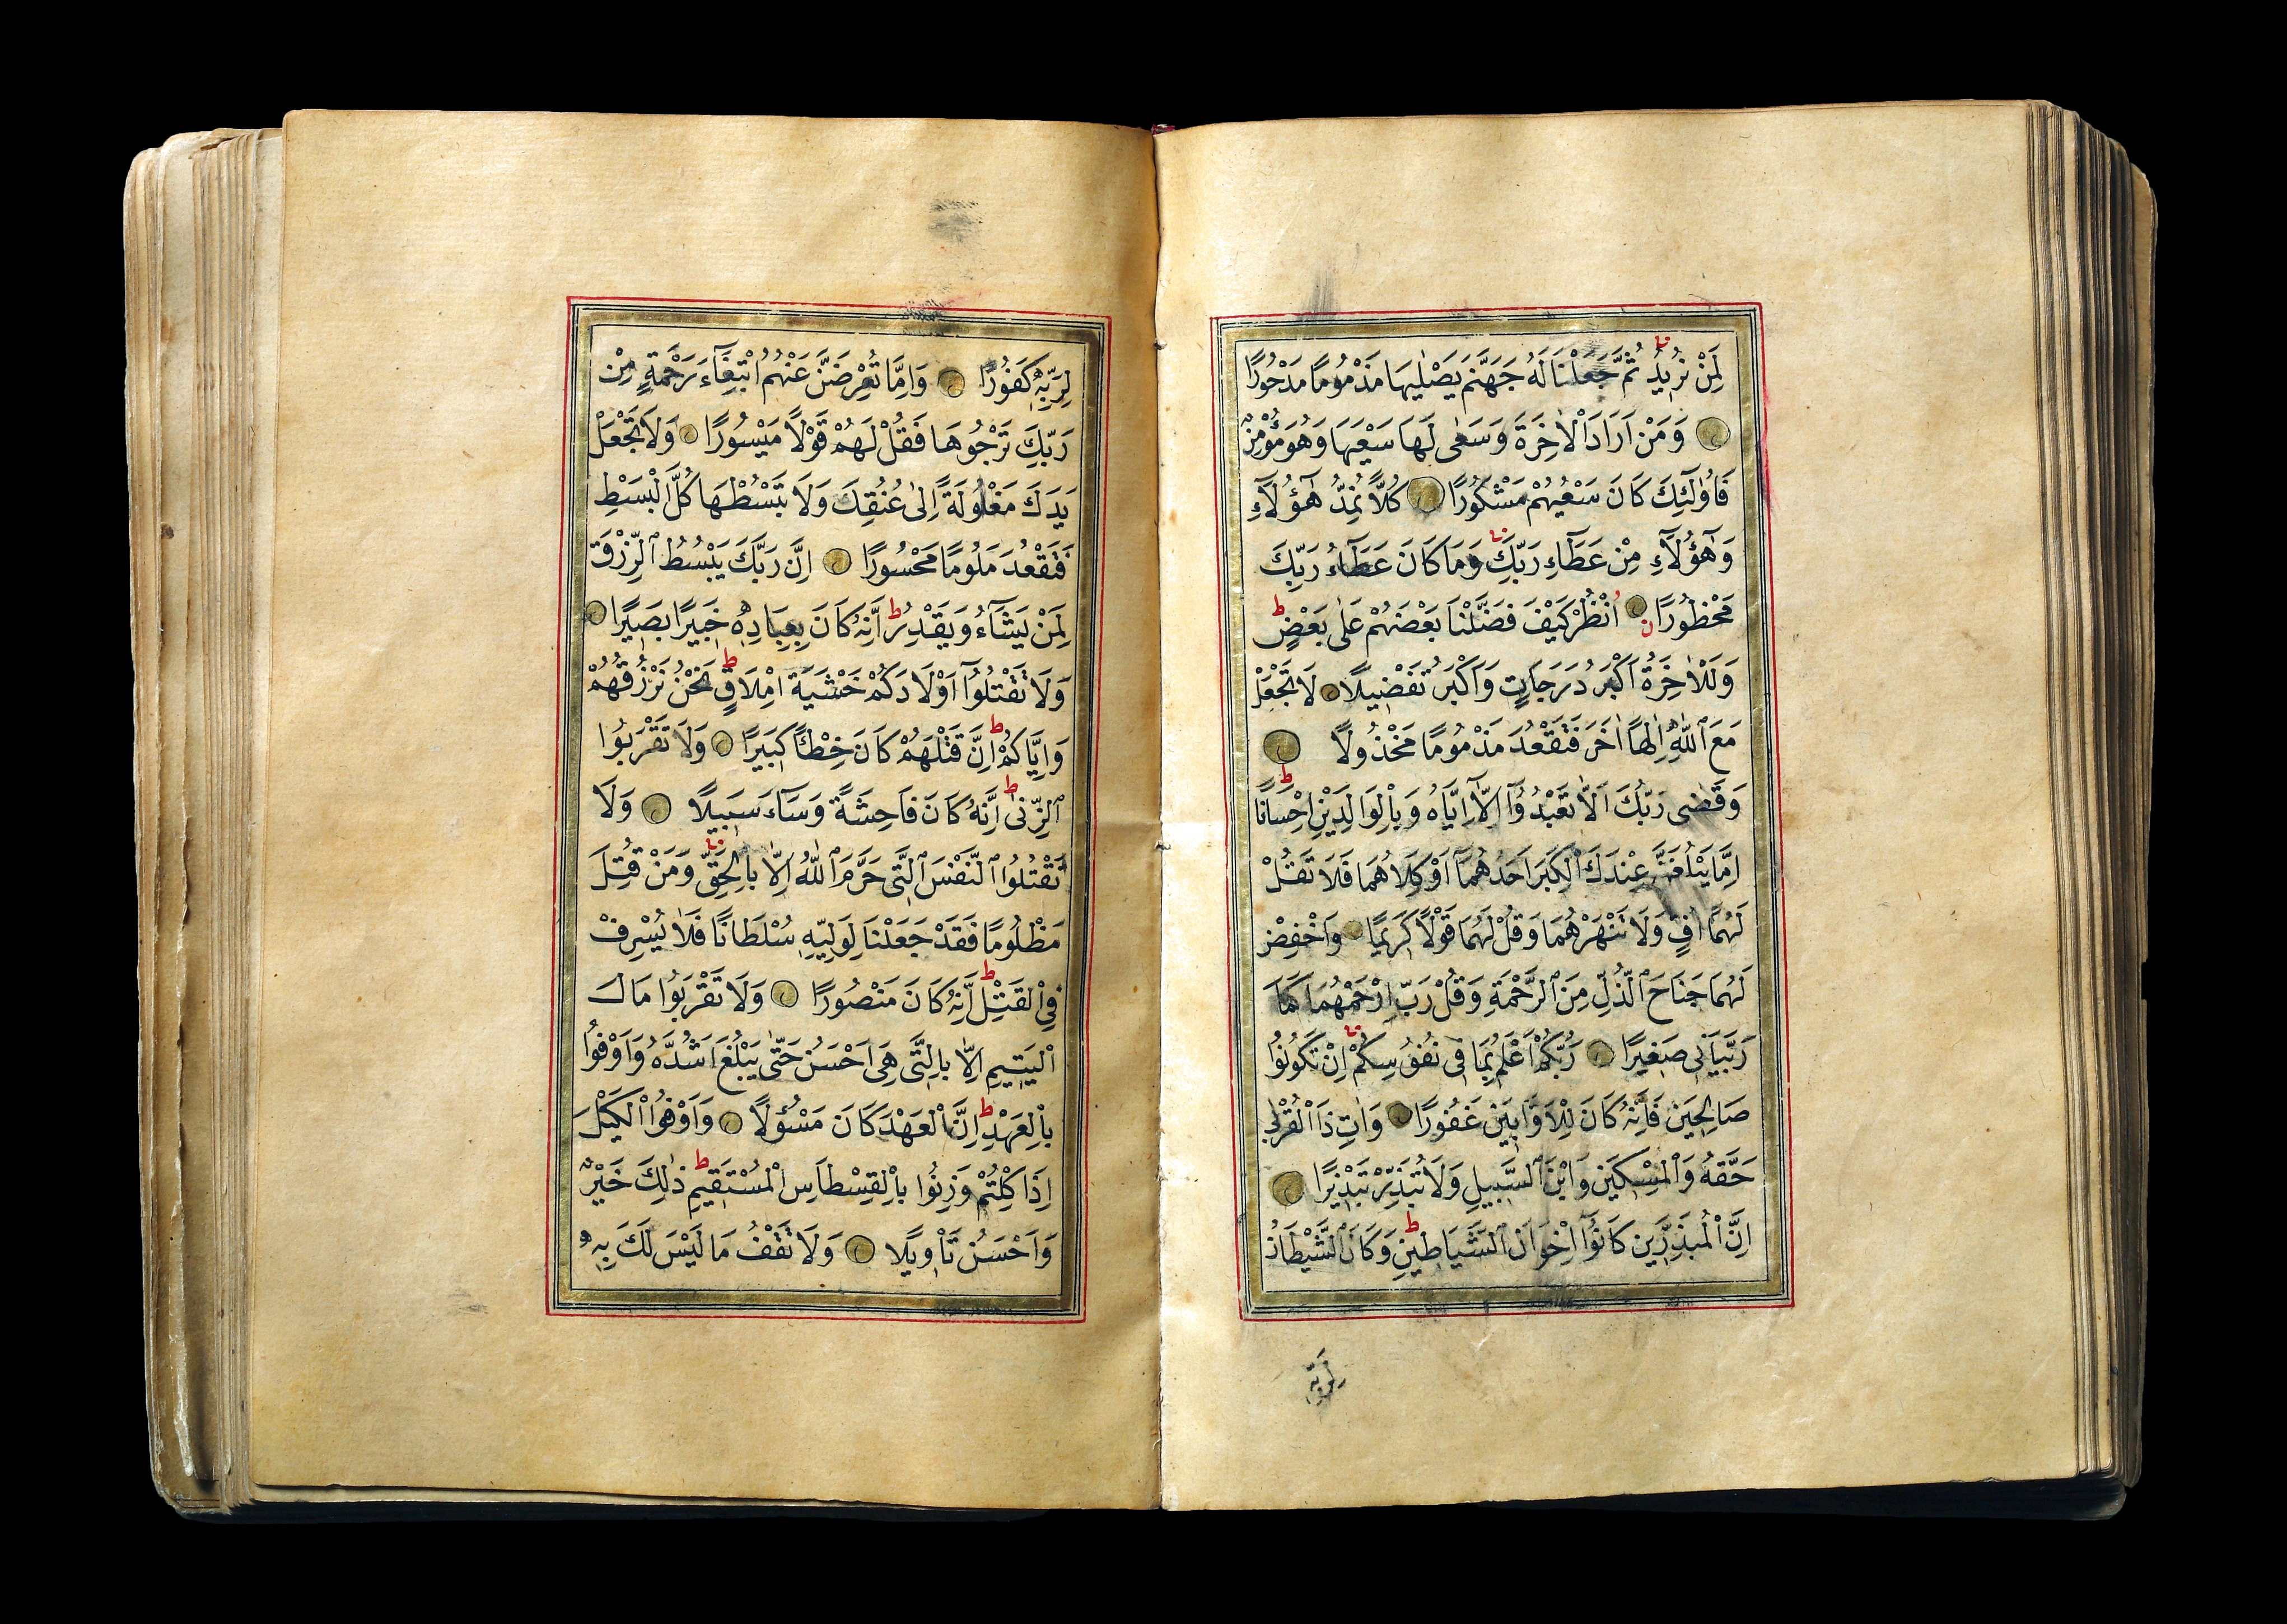 لِمَنْ نُرٖيدُ ثُمَّ جَعَلْنَا لَهُ جَهَنَّمَ يَصْلٰيهَا مَذْمُومًا مَدْحُورًا
وَمَنْ اَرَادَ الْاٰخِرَةَ وَسَعٰى لَهَا سَعْيَهَا وَهُوَ مُؤْمِنٌ
فَاُولٰٓئِكَ كَانَ سَعْيُهُمْ مَشْكُورًا كُلًّا نُمِدُّ هٰٓؤُلَٓاءِ
وَهٰٓؤُلَٓاءِ مِنْ عَطَٓاءِ رَبِّكَ وَمَا كَانَ عَطَٓاءُ رَبِّكَ
مَحْظُورًا اُنْظُرْ كَيْفَ فَضَّلْنَا بَعْضَهُمْ عَلٰى بَعْضٍ ط
وَلَلْاٰخِرَةُ اَكْبَرُ دَرَجَاتٍ وَاَكْبَرُ تَفْضٖيلًا لَا تَجْعَلْ
مَعَ اللّٰهِ اِلٰهًا اٰخَرَ فَتَقْعُدَ مَذْمُومًا مَخْذُولًا
وَقَضٰى رَبُّكَ اَلَّا تَعْبُدُٓوا اِلَّٓا اِيَّاهُ وَبِالْوَالِدَيْنِ اِحْسَانًا ط
اِمَّا يَبْلُغَنَّ عِنْدَكَ الْكِبَرَ اَحَدُهُمَٓا اَوْ كِلَاهُمَا فَلَا تَقُلْ
لَهُمَا اُفٍّ وَلَا تَنْهَرْهُمَا وَقُلْ لَهُمَا قَوْلًا كَرٖيمًا وَاخْفِضْ
لَهُمَا جَنَاحَ الذُّلِّ مِنَ الرَّحْمَةِ وَقُلْ رَبِّ ارْحَمْهُمَا كَمَا
رَبَّيَانٖى صَغٖيرًا رَبُّكُمْ اَعْلَمُ بِمَا فٖى نُفُوسِكُمْ اِنْ تَكُونُوا
صَالِحٖينَ فَاِنَّهُ كَانَ لِلْاَوَّابٖينَ غَفُورًا وَاٰتِ ذَا الْقُرْبٰى
حَقَّهُ وَالْمِسْكٖينَ وَابْنَ السَّبٖيلِ وَلَا تُبَذِّرْ تَبْذٖيرًا
اِنَّ الْمُبَذِّرٖينَ كَانُٓوا اِخْوَانَ الشَّيَاطٖينِ ط وَكَانَ الشَّيْطَانُ
لِرَبِّهٖ
لِرَبِّهٖ كَفُورًا وَاِمَّا تُعْرِضَنَّ عَنْهُمُ ابْتِغَٓاءَ رَحْمَةٍ مِنْ
رَبِّكَ تَرْجُوهَا فَقُلْ لَهُمْ قَوْلًا مَيْسُورًا وَلَا تَجْعَلْ
يَدَكَ مَغْلُولَةً اِلٰى عُنُقِكَ وَلَا تَبْسُطْهَا كُلَّ الْبَسْطِ
فَتَقْعُدَ مَلُومًا مَحْسُورًا اِنَّ رَبَّكَ يَبْسُطُ الرِّزْقَ
لِمَنْ يَشَٓاءُ وَيَقْدِرُ ط اِنَّهُ كَانَ بِعِبَادِهٖ خَبٖيرًا بَصٖيرًا
وَلَا تَقْتُلُٓوا اَوْلَادَكُمْ خَشْيَةَ اِمْلَاقٍ ط نَحْنُ نَرْزُقُهُمْ
وَاِيَّاكُمْ ط اِنَّ قَتْلَهُمْ كَانَ خِطْـًٔا كَبٖيرًا وَلَا تَقْرَبُوا
الزِّنٰٓى ط اِنَّهُ كَانَ فَاحِشَةً وَسَٓاءَ سَبٖيلًا وَلَا
تَقْتُلُوا النَّفْسَ الَّتٖى حَرَّمَ اللّٰهُ اِلَّا بِالْحَقِّ وَمَنْ قُتِلَ
مَظْلُومًا فَقَدْ جَعَلْنَا لِوَلِيِّهٖ سُلْطَانًا فَلَا يُسْرِفْ
فِى الْقَتْلِ ط اِنَّهُ كَانَ مَنْصُورًا وَلَا تَقْرَبُوا مَالَ
الْيَتٖيمِ اِلَّا بِالَّتٖى هِىَ اَحْسَنُ حَتّٰى يَبْلُغَ اَشُدَّهُ وَاَوْفُوا
بِالْعَهْدِ ط اِنَّ الْعَهْدَ كَانَ مَسْؤُلًا وَاَوْفُوا الْكَيْلَ
اِذَا كِلْتُمْ وَزِنُوا بِالْقِسْطَاسِ الْمُسْتَقٖيمِ ط ذٰلِكَ خَيْرٌ
وَاَحْسَنُ تَاْوٖيلًا وَلَا تَقْفُ مَا لَيْسَ لَكَ بِهٖ